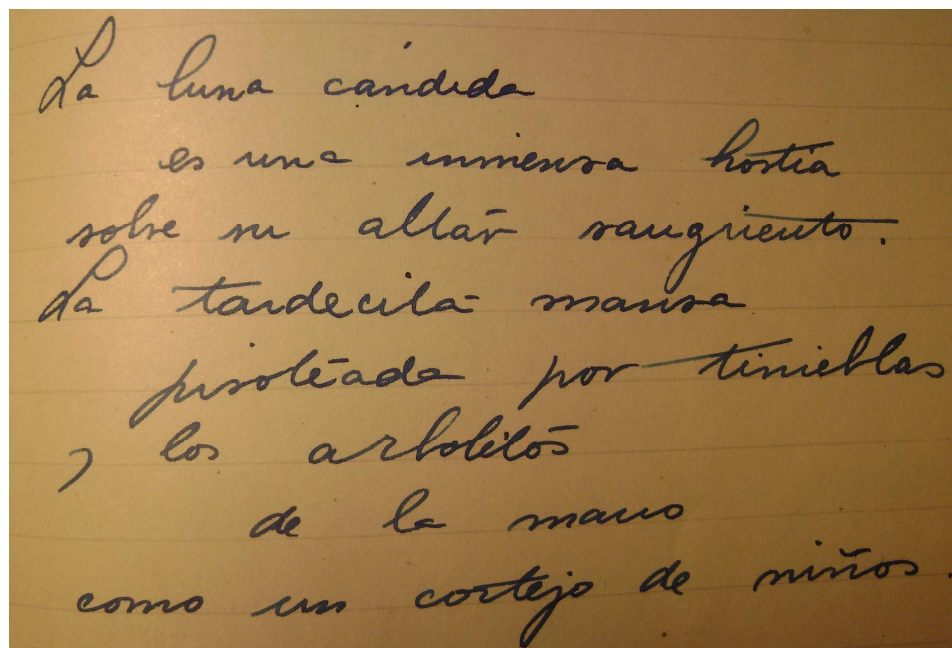 La luna cándida
es una inmensa hostia
sobre su altar sangriento.
La tardecita mansa
pisoteada por tinieblas
y los arbolitos
de la mano
como un cortejo de niños.